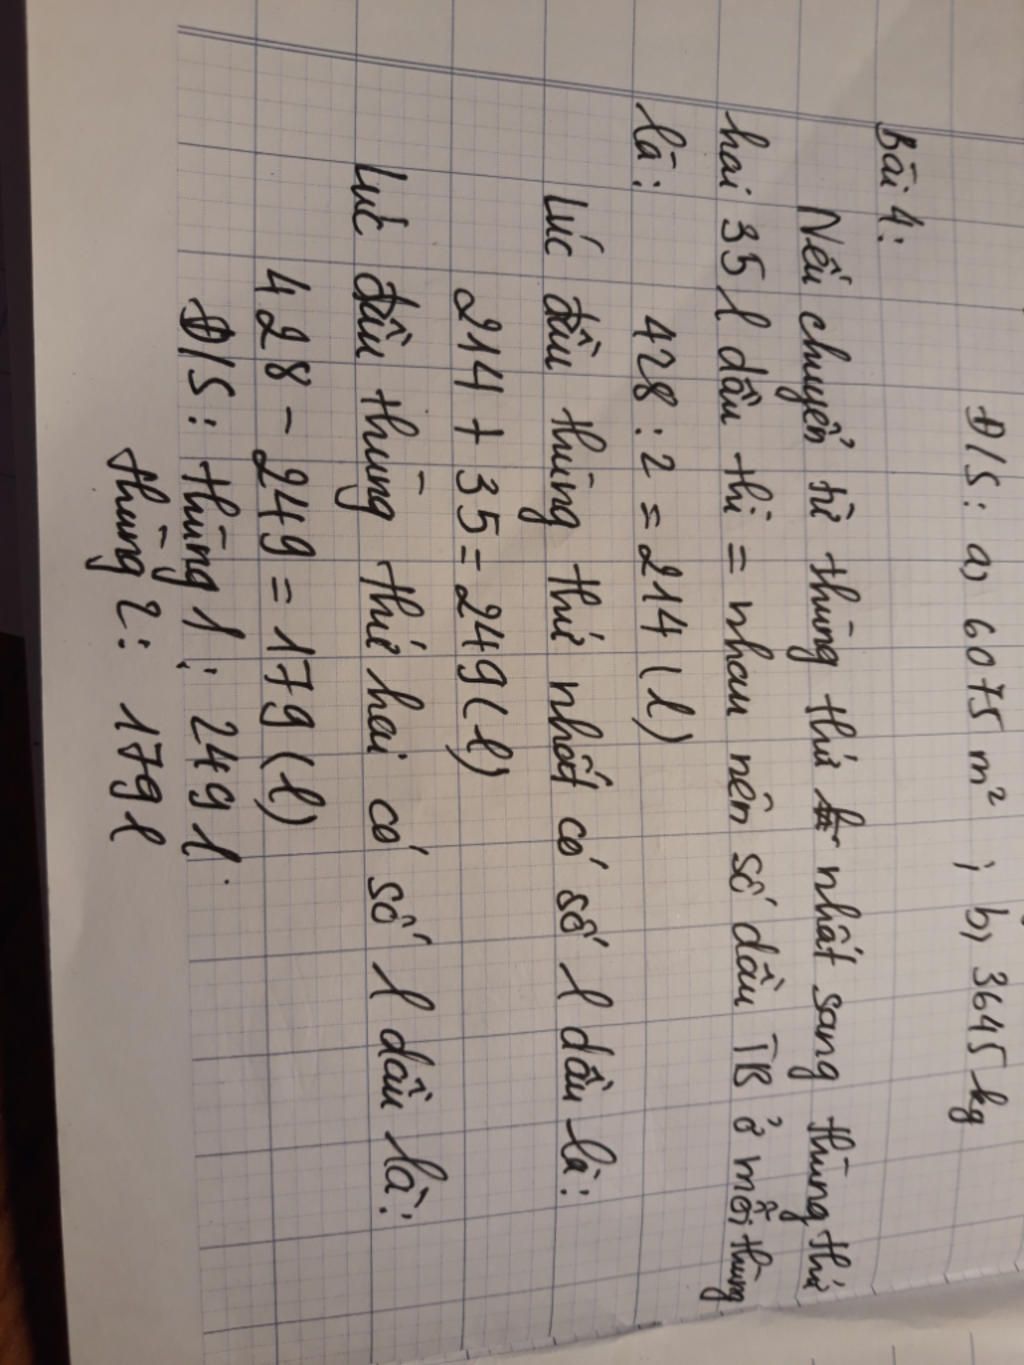 Đ/S: a, 6075 m² ; b, 3645 kg
Bài 4:
Nếu chuyển từ thùng thứ nhất sang thùng thứ
hai 35 l dầu thì = nhau nên số dầu TB ở mỗi thùng
là: 428 : 2 = 214 (l)
Lúc đầu thùng thứ nhất có số l dầu là:
214 + 35 = 249 (l)
Lúc đầu thùng thứ hai có số l dầu là:
428 - 249 = 179 (l)
Đ/S: thùng 1: 249 l.
thùng 2: 179 l